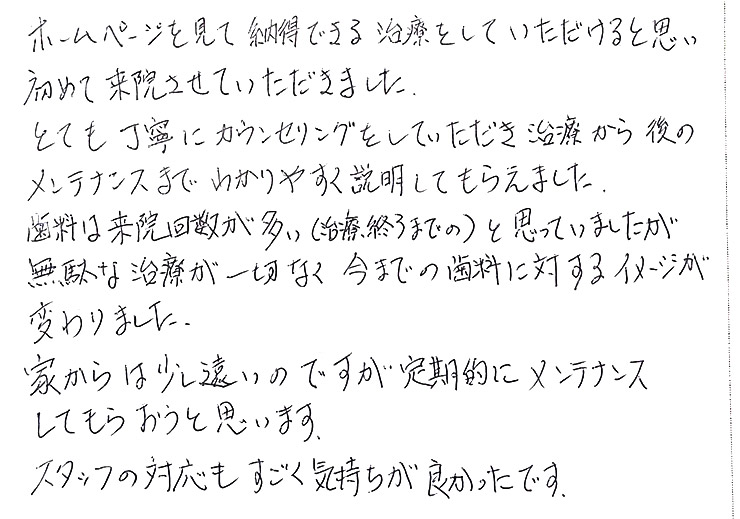 ホームページを見て納得できる治療をしていただけると思い
初めて来院させていただきました.
とても丁寧にカウンセリングをしていただき治療から後の
メンテナンスまでわかりやすく説明してもらえました.
歯科は来院回数が多い(治療終了までの)と思っていましたが
無駄な治療が一切なく今までの歯科に対するイメージが
変わりました.
家からは少し遠いのですが定期的にメンテナンス
してもらおうと思います.
スタッフの対応もすごく気持ちが良かったです.